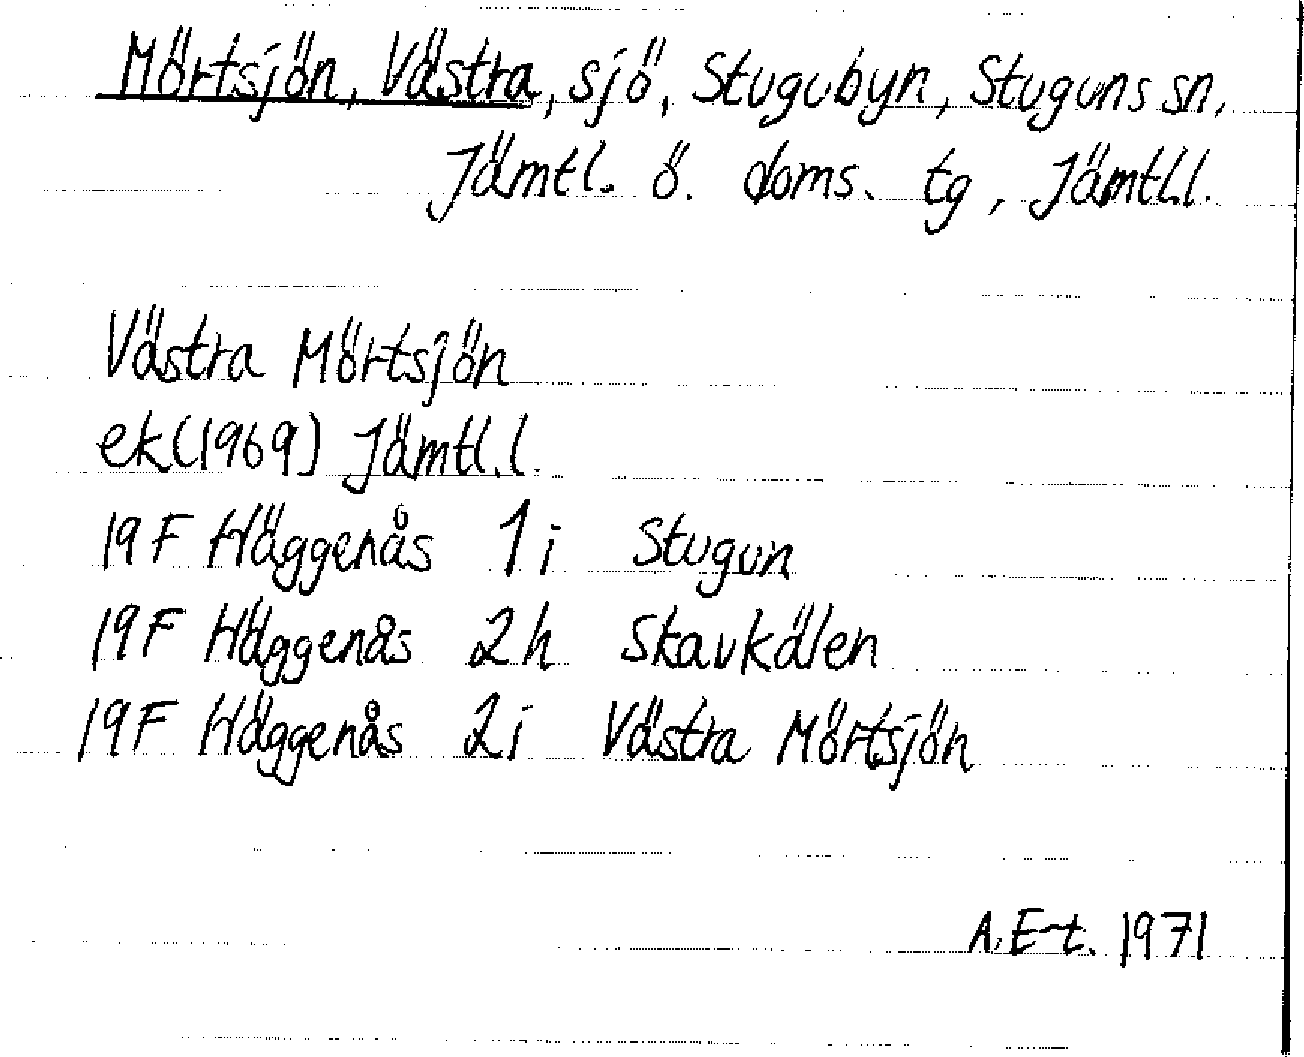 Mörtsjön, Västra, sjö, Stugubyn, Stuguns sn,
Jämtl. ö. doms. tg, Jämtl.l.
Västra Mörtsjön
ek(1969) Jämtl.l.
19F Häggenås 1i Stugun
19F Häggenås 2h Skavkälen
19F Häggenås 2i Västra Mörtsjön
A.E-t. 1971